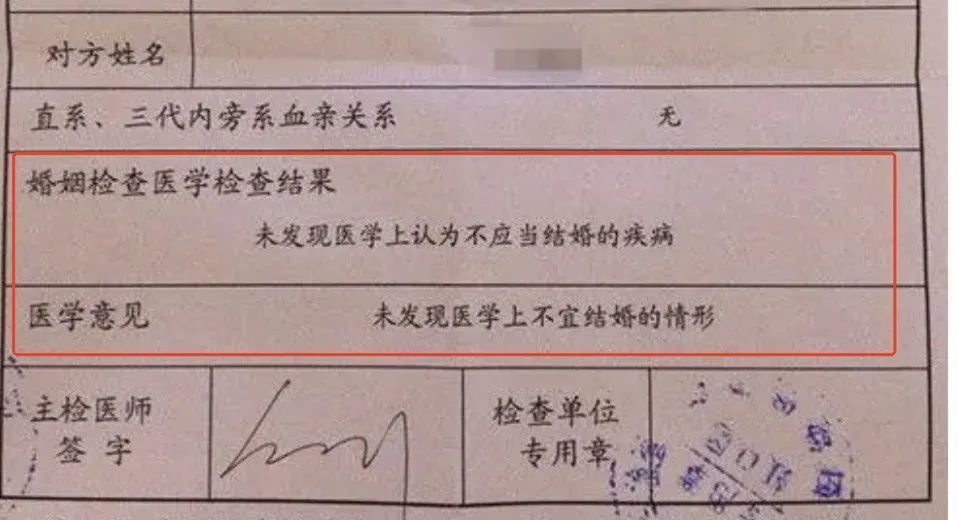 对方姓名
直系、三代内旁系血亲关系 无
婚姻检查医学检查结果
未发现医学上认为不应当结婚的疾病
医学意见 未发现医学上不宜结婚的情形
主检医师 检查单位
签字 专用章